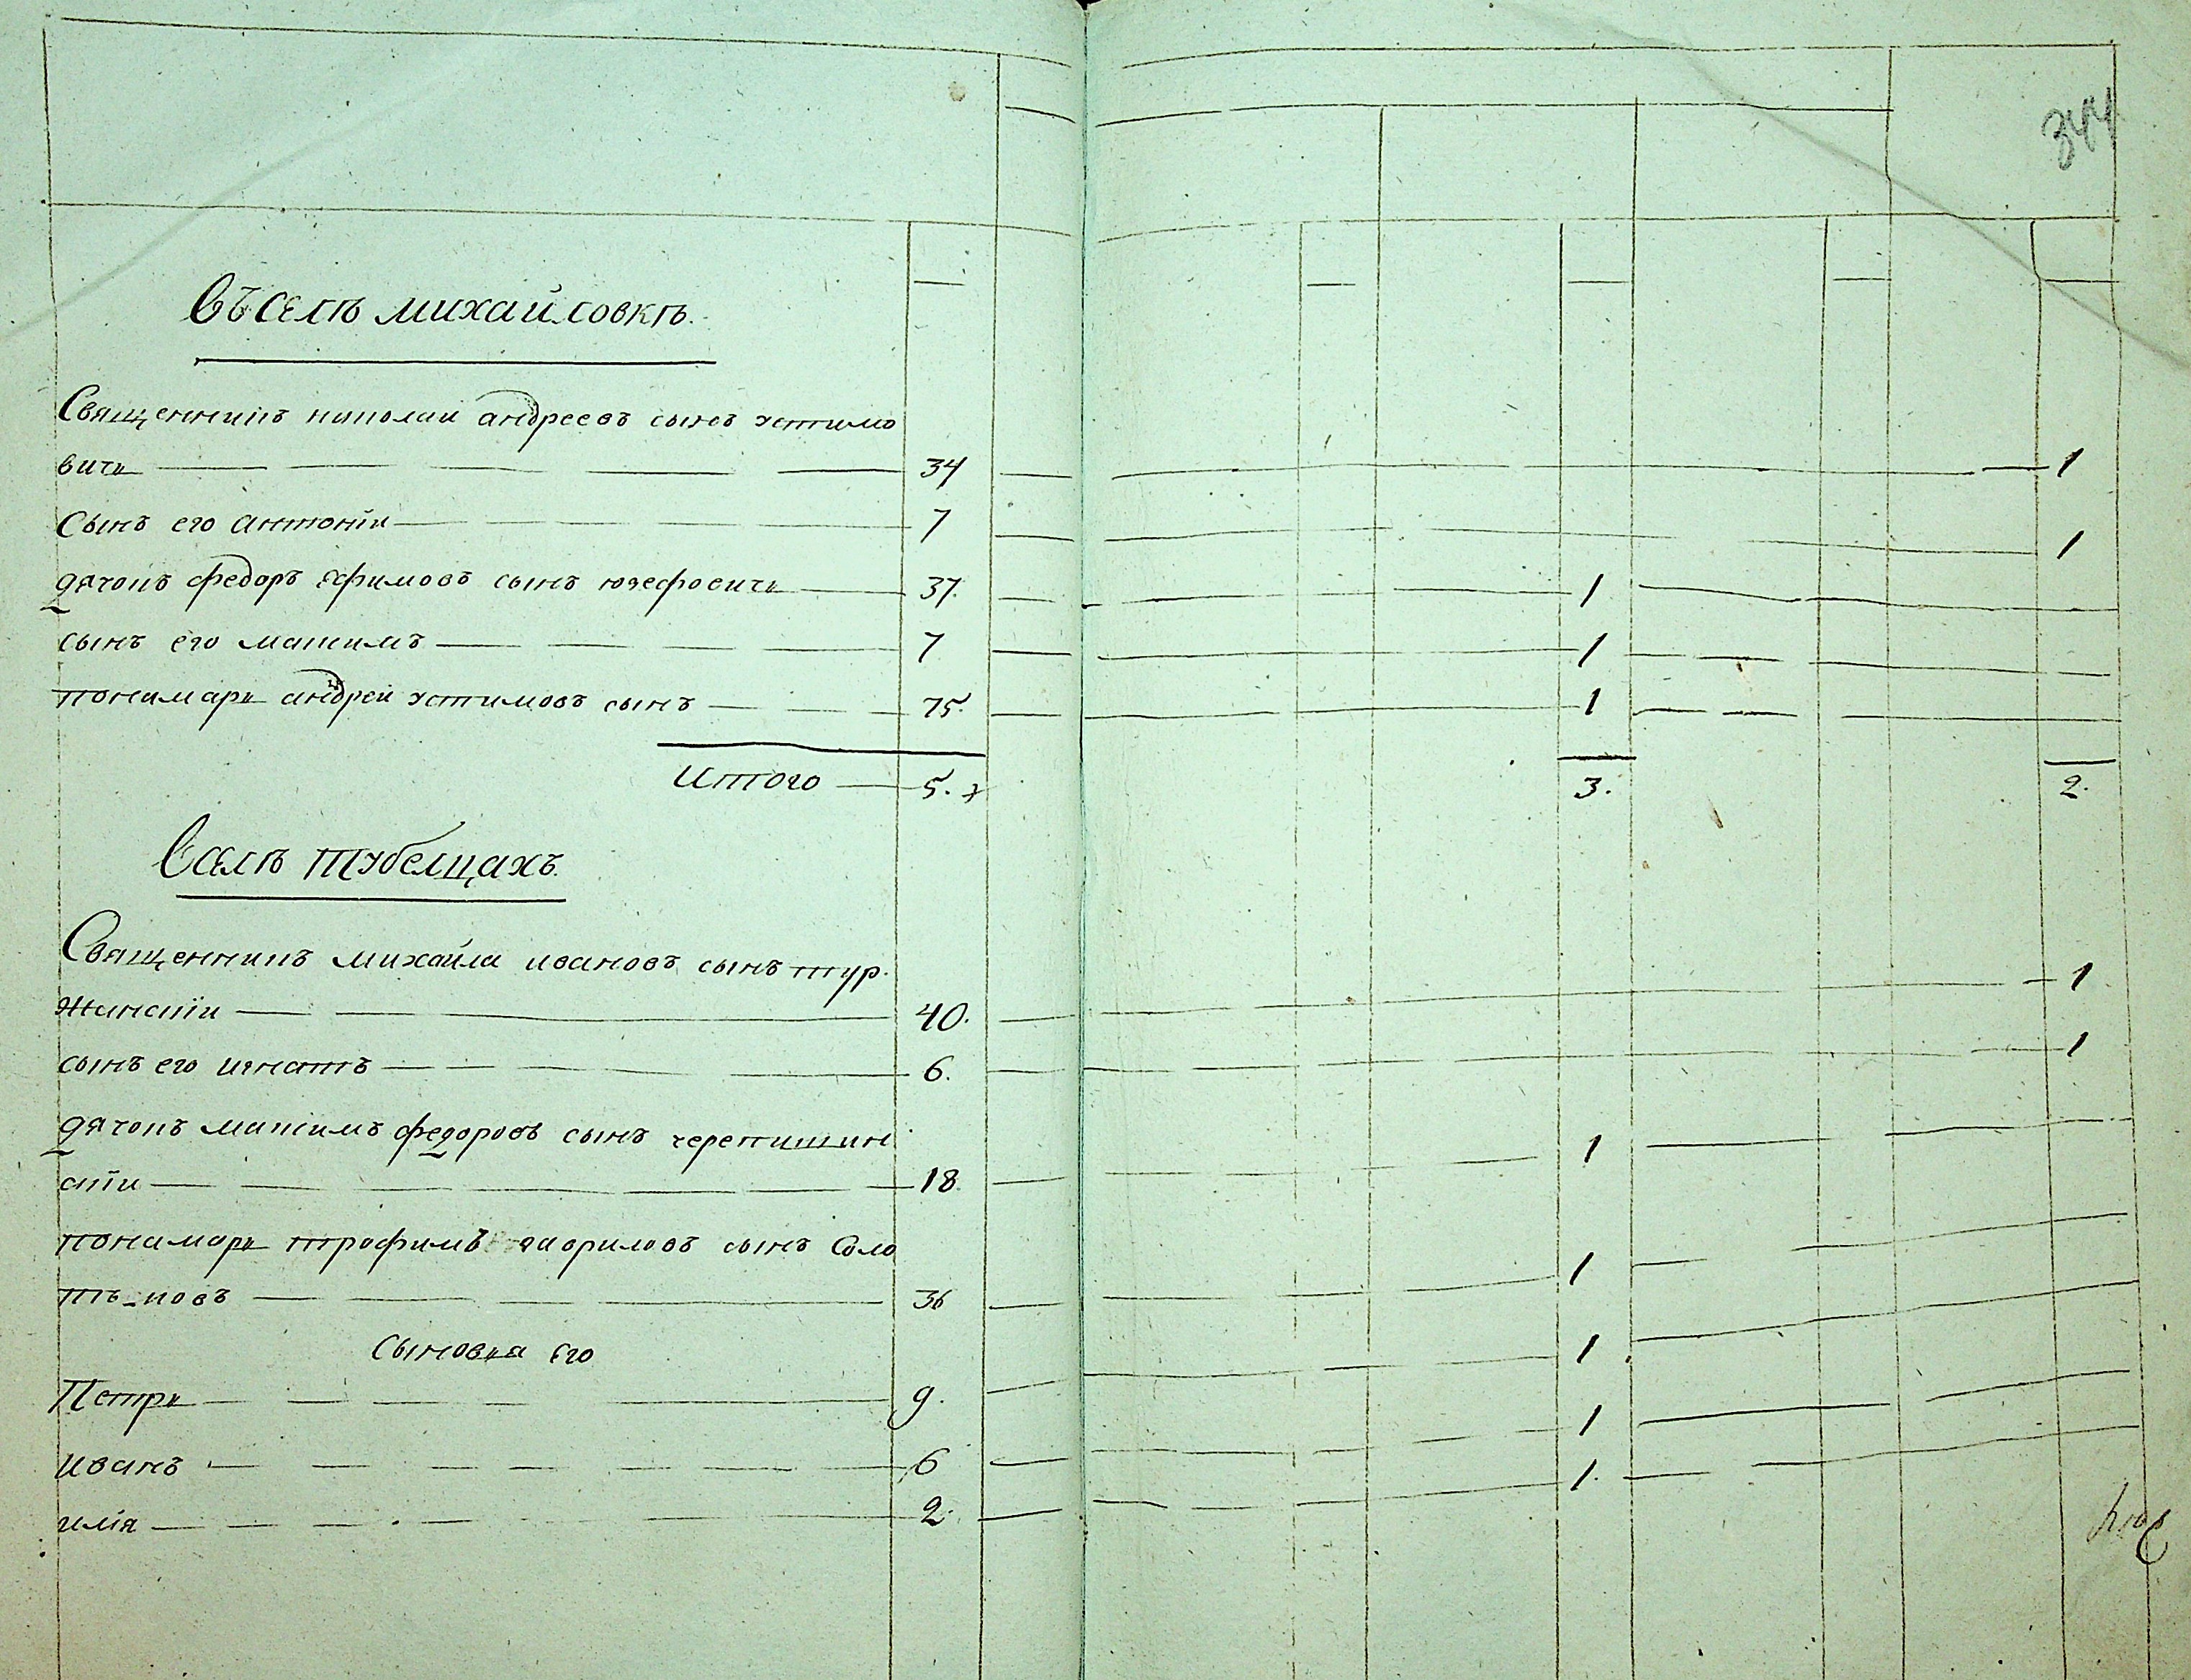 344
въ селѣ михайловкѣ.
Священникъ николай андреевъ сынъ устимо
вичь 34 1
Сынъ его антоній 7 1
дячокъ федоръ ефимовъ сынъ юзефовичь 37. 1
сынъ его максимъ 7 1
пономарь андрей устимовъ сынъ 75. 1
Итого 5. 3. 2.
Въ селѣ тубелцахъ.
Священникъ михайла ивановъ сынъ тур.
жанскій 40. 1
сынъ его игнатъ 6. 1
дячокъ максимъ федоровъ сынъ черепишин
скій 18. 1
пономарь трофимъ гавриловъ сынъ Соло
36 1
Сыновья его
Петръ 9. 1
иванъ 6 1
илія 2. 1